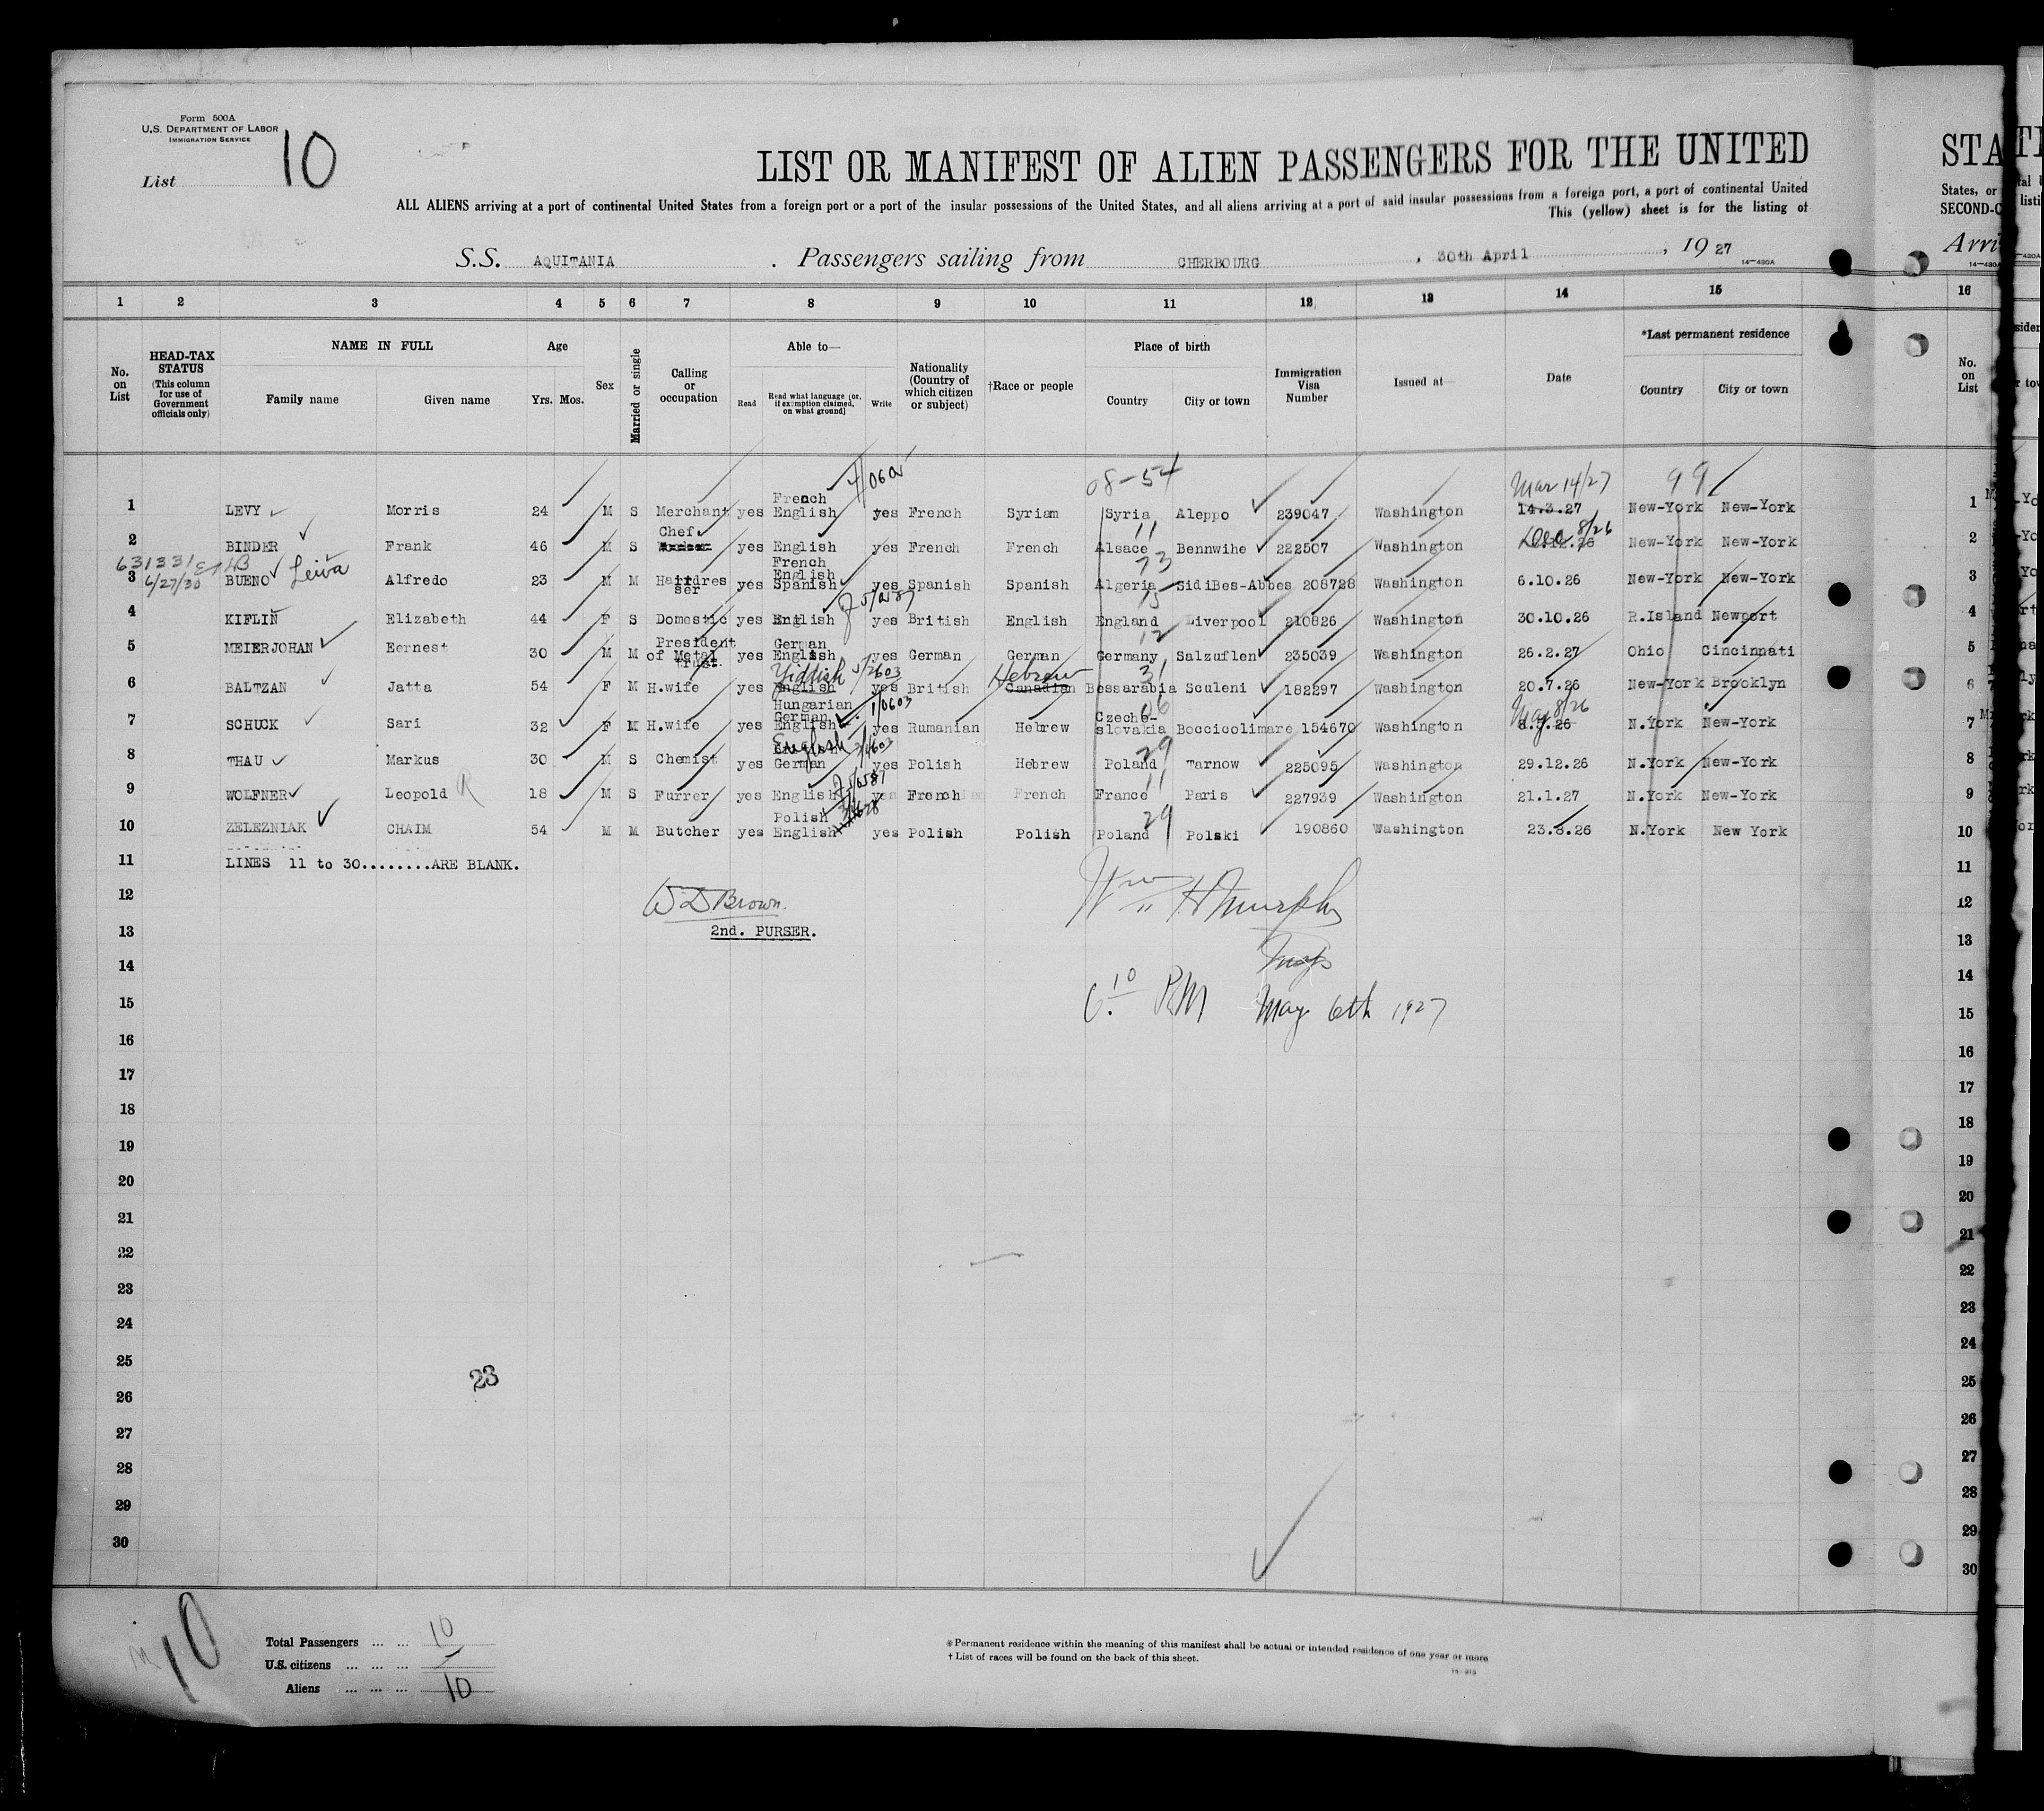 Form 500A
U.S. DEPARTMENT OF LABOR
IMMIGRATION SERVICE
List 10
LIST OR MANIFEST OF ALIEN PASSENGERS FOR THE UNITED
ALL ALIENS arriving at a port of continental United States from a foreign port or a port of the insular possessions of the United States, and all aliens arriving at a port of said insular possessions from a foreign port, a port of continental United
This (yellow) sheet is for the listing of
S.S. AQUITANIA . Passengers sailing from CHERBOURG , 30th April , 1927
14—430A
1 2 3 4 5 6 7 8 9 10 11 12 13 14 15
No. on List
HEAD-TAX STATUS (This column for use of Government officials only)
NAME IN FULL Family name Given name
Age Yrs. Mos.
Sex
Married or single
Calling or occupation
Able to— Read Read what language [or, if exemption claimed, on what ground] Write
Nationality (Country of which citizen or subject)
†Race or people
Place of birth Country City or town
Immigration Visa Number
Issued at
Date
*Last permanent residence Country City or town
08-54 Mar 14/27 99
1 LEVY Morris 24 M S Merchant yes French English yes French Syriam Syria Aleppo 239047 Washington 14.3.27 New-York New-York
2 BINDER Frank 46 M S Chef yes English yes French French Alsace 11 Bennwihe 222507 Washington Dec 8/26 New-York New-York
631331
6/27/30
3 BUENO Leiva Alfredo 23 M M Hairdres ser yes French English Spanish yes Spanish Spanish Algeria 73 SidiBes-Abbes 208728 Washington 6.10.26 New-York New-York
4 KIFLIN Elizabeth 44 F S Domestic yes English yes British English England 15 Liverpool 210826 Washington 30.10.26 R.Island Newport
5 MEIERJOHAN Eernest 30 M M President of Metal trust. yes German English yes German German Germany 12 Salzuflen 235039 Washington 26.2.27 Ohio Cincinnati
6 BALTZAN Jatta 54 F M H.wife yes Yiddish English 5/2603 yes British Hebrew Canadian Bessarabia 31 Sculeni 182297 Washington 20.7.26 New-York Brooklyn
7 SCHUCK Sari 32 F M H.wife yes Hungarian German English 1/0603 yes Rumanian Hebrew Czecho-slovakia 06 Boccicolimare 154670 Washington May 8/26 N.York New-York
8 THAU Markus 30 M S Chemist yes English German yes Polish Hebrew Poland 29 Tarnow 225095 Washington 29.12.26 N.York New-York
9 WOLFNER Leopold R 18 M S Furrer yes English yes French French France 11 Paris 227939 Washington 21.1.27 N.York New-York
10 ZELEZNIAK CHAIM 54 M M Butcher yes Polish English yes Polish Polish Poland 29 Polski 190860 Washington 23.8.26 N.York New York
11 LINES 11 to 30........ARE BLANK.
12 W D Brown. Wm H Murphy
13 2nd. PURSER.
14 Insp
15 6.10 PM May 6th 1927
16
17
18
19
20
21
22
23
24
25
23
26
27
28
29
30
10
Total Passengers ... ... 10
U.S. citizens ... ... ...
Aliens ... ... ... 10
*Permanent residence within the meaning of this manifest shall be actual or intended residence of one year or more
† List of races will be found on the back of this sheet.
STA
States, or
SECOND-C
Arri
14—430A
16
No. on List
1
2
3
4
5
6
7
8
9
10
11
12
13
14
15
16
17
18
19
20
21
22
23
24
25
26
27
28
29
30